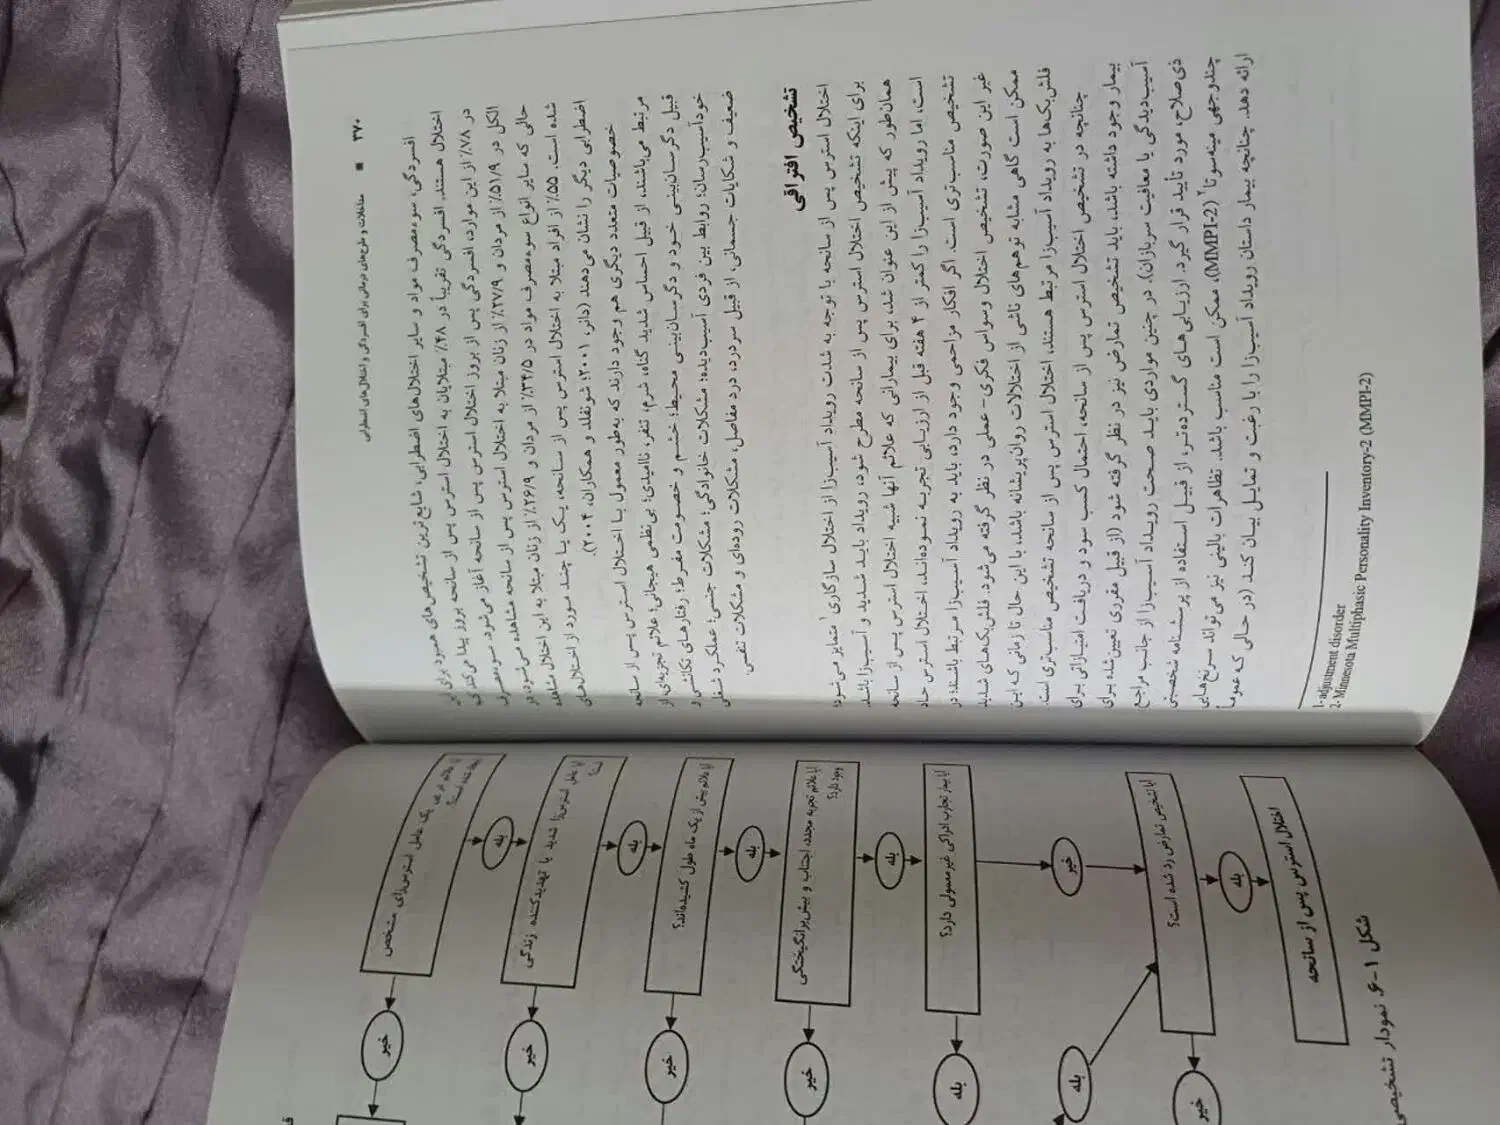 ۳۷۰ ■ مداخلات و طرح‌های درمانی برای افسردگی و اختلال‌های اضطرابی
افسردگی، سوءمصرف مواد و سایر اختلال‌های اضطرابی، شایع‌ترین تشخیص‌های همبود برای این
اختلال هستند. افسردگی تقریباً در ۴۸٪ مبتلایان به اختلال استرس پس از سانحه بروز پیدا می‌کند که
در ۷۸٪ از این موارد، افسردگی پس از بروز اختلال استرس پس از سانحه آغاز می‌شود. سوءمصرف
الکل در ۵۱/۹٪ از مردان و ۲۷/۹٪ از زنان مبتلا به اختلال استرس پس از سانحه مشاهده می‌شود، در
حالی که سایر انواع سوءمصرف مواد در ۳۴/۵٪ از مردان و ۲۶/۹٪ از زنان مبتلا به این اختلال مشاهده
شده است. ۵۵٪ از افراد مبتلا به اختلال استرس پس از سانحه، یک یا چند مورد از اختلال‌های
اضطرابی دیگر را نشان می‌دهند (دانر، ۲۰۰۱؛ شونفلد و همکاران، ۲۰۰۴).
خصوصیات متعدد دیگری هم وجود دارند که به‌طور معمول با اختلال استرس پس از سانحه
مرتبط می‌باشند، از قبیل احساس شدید گناه، شرم، تنفر، ناامیدی؛ بی‌نظمی هیجانی؛ علائم تجزیه‌ای از
قبیل دگرسان‌بینی خود و دگرسان‌بینی محیط؛ خشم و خصومت مفرط؛ رفتارهای تکانشی و
خودآسیب‌رسان؛ روابط بین فردی آسیب‌دیده؛ مشکلات خانوادگی؛ مشکلات جنسی؛ عملکرد شغلی
ضعیف و شکایات جسمانی، از قبیل سردرد، درد مفاصل، مشکلات روده‌ای و مشکلات تنفسی.
تشخیص افتراقی
اختلال استرس پس از سانحه با توجه به شدت رویداد آسیب‌زا از اختلال سازگاری۱ متمایز می‌شود؛
برای اینکه تشخیص اختلال استرس پس از سانحه مطرح شود، رویداد باید شدید و آسیب‌زا باشد.
همان‌طور که پیش از این عنوان شد، برای بیمارانی که علائم آنها شبیه اختلال استرس پس از سانحه
است، اما رویداد آسیب‌زا را کمتر از ۴ هفته قبل از ارزیابی تجربه نموده‌اند، اختلال استرس حاد
تشخیص مناسب‌تری است. اگر افکار مزاحمی وجود دارد، باید به رویداد آسیب‌زا مرتبط باشند؛ در
غیر این صورت، تشخیص اختلال وسواس فکری- عملی در نظر گرفته می‌شود. فلش‌بک‌های شدید
ممکن است گاهی مشابه توهم‌های ناشی از اختلالات روان‌پریشانه باشد، با این حال تا زمانی که این
فلش‌بک‌ها به رویداد آسیب‌زا مرتبط هستند، اختلال استرس پس از سانحه تشخیص مناسب‌تری است.
چنانچه در تشخیص اختلال استرس پس از سانحه، احتمال کسب سود و دریافت امتیازاتی برای
بیمار وجود داشته باشد، باید تشخیص تمارض نیز در نظر گرفته شود (از قبیل مقرری تعیین‌شده برای
آسیب‌دیدگی یا معافیت سربازان). در چنین مواردی باید صحت رویداد آسیب‌زا از جانب مراجع
ذی‌صلاح، مورد تأیید قرار گیرد. ارزیابی‌های گسترده‌تر، از قبیل استفاده از پرسشنامه شخصیتی
چندوجهی مینه‌سوتا۲ (MMPI-2)، ممکن است مناسب باشد. تظاهرات بالینی نیز می‌تواند سرنخ‌هایی
ارائه دهد. چنانچه بیمار داستان رویداد آسیب‌زا را با رغبت و تمایل بیان کند (در حالی که عموماً
1- adjustment disorder
2- Minnesota Multiphasic Personality Inventory-2 (MMPI-2)
آیا علائم در پی یک عامل استرس‌زای مشخص
بله
خیر
آیا عامل استرس‌زا شدید یا تهدیدکننده زندگی
است؟
بله
خیر
آیا علائم بیش از یک ماه طول کشیده‌اند؟
بله
خیر
آیا علائم تجربه مجدد، اجتناب و بیش‌برانگیختگی
وجود دارد؟
بله
خیر
آیا بیمار تجارب ادراکی غیرمعمولی دارد؟
خیر
بله
بله
آیا تشخیص تمارض رد شده است؟
بله
خیر
اختلال استرس پس از سانحه
شکل ۱-۶. نمودار تشخیصی